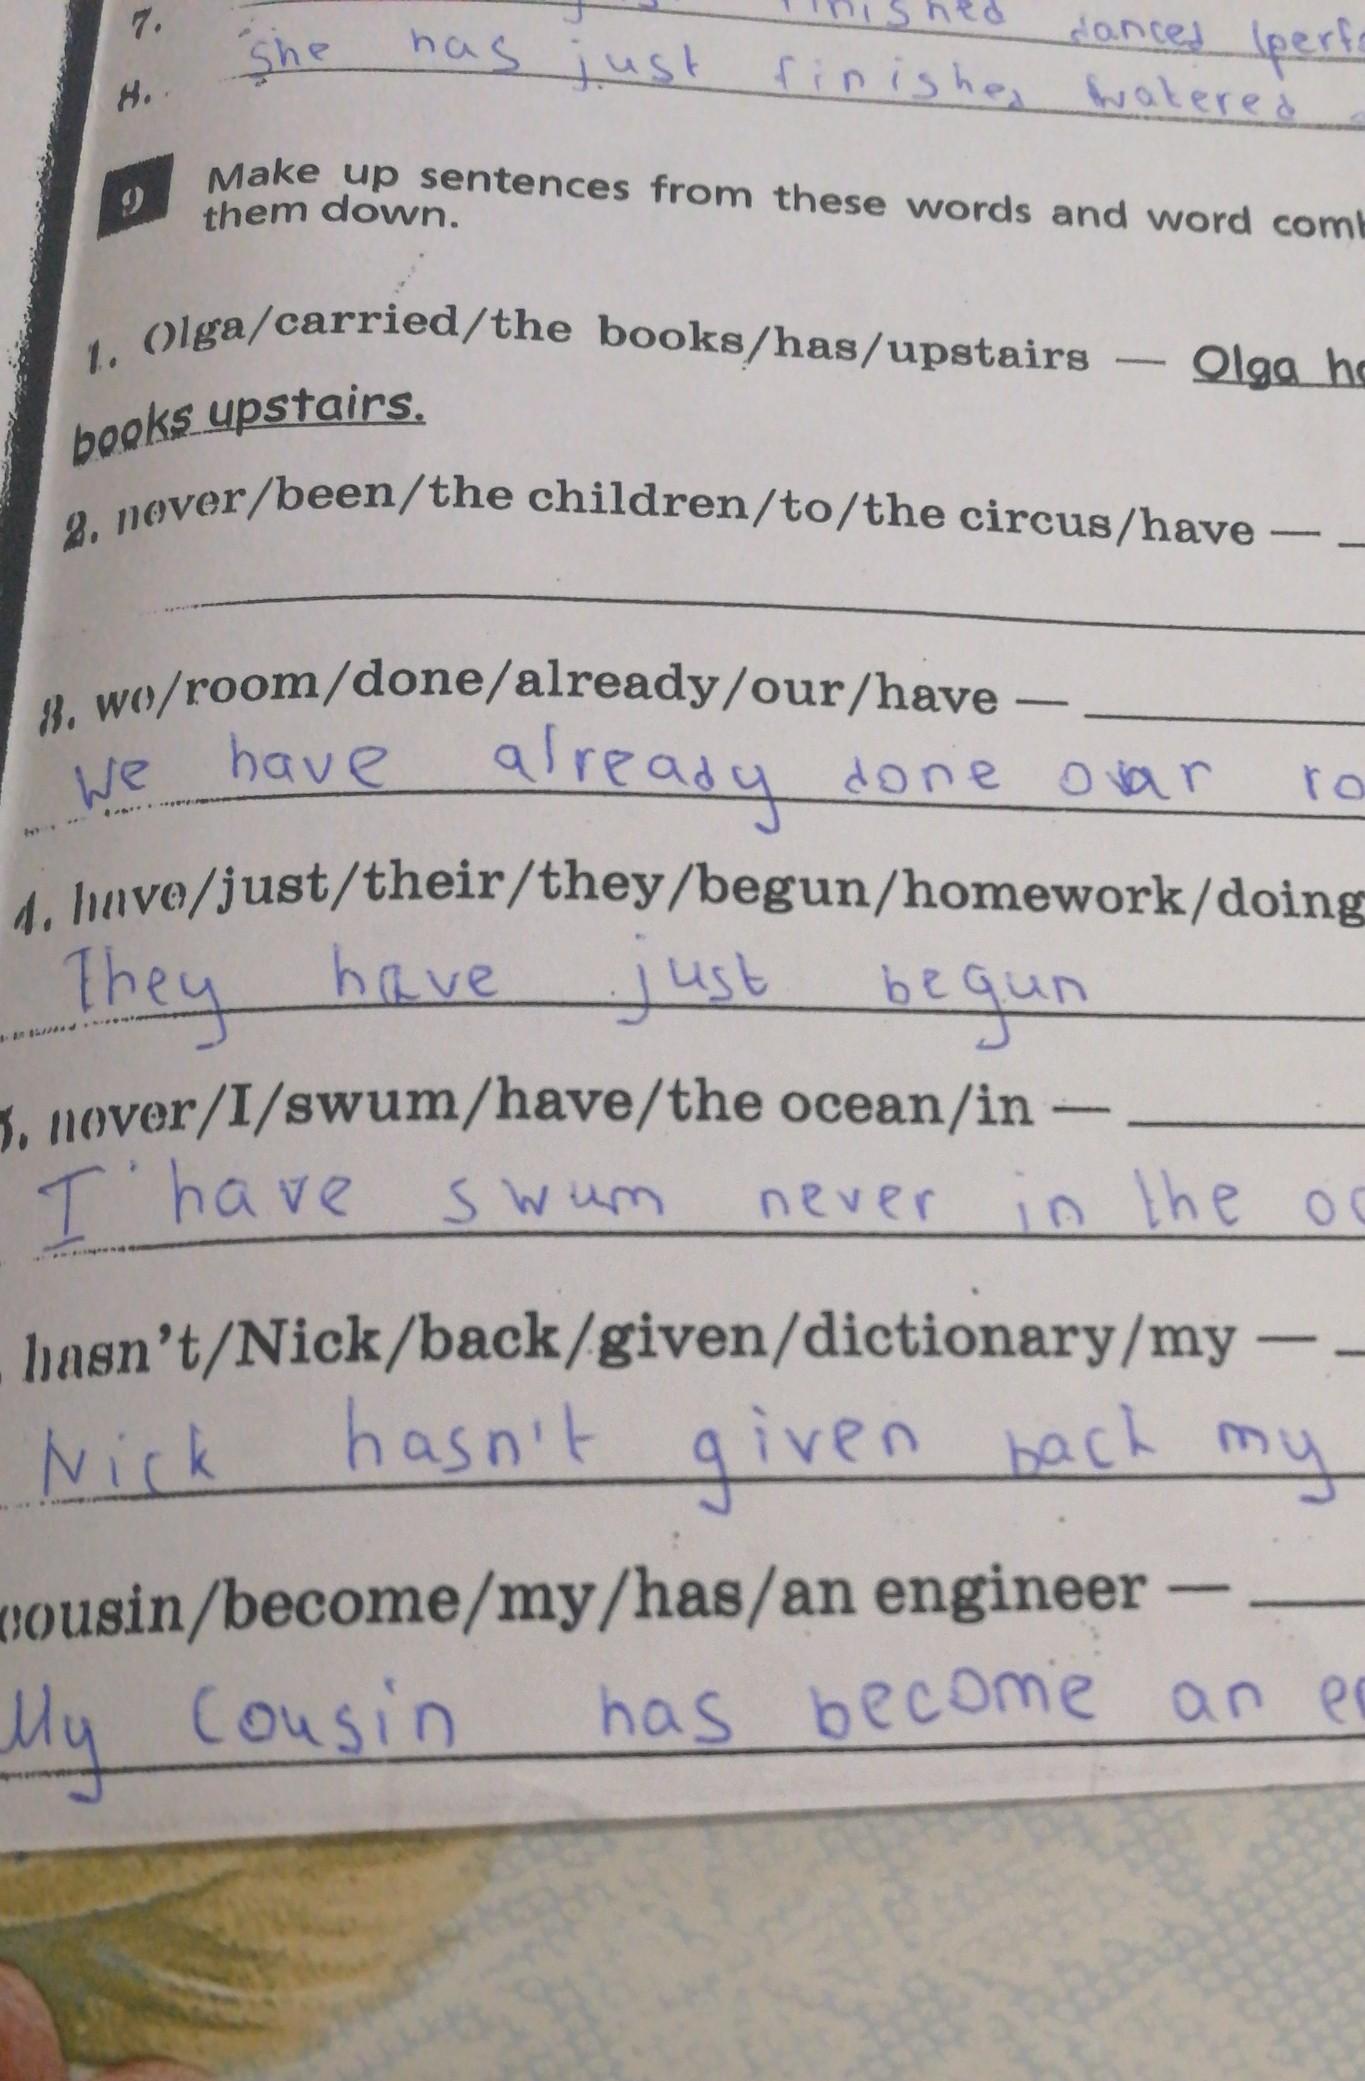 7. finished danced (perfo
8. She has just finished watered
9 Make up sentences from these words and word comb
them down.
1. Olga/carried/the books/has/upstairs — Olga ha
books upstairs.
2. never/been/the children/to/the circus/have —
3. we/room/done/already/our/have —
We have already done our ro
4. have/just/their/they/begun/homework/doing
They have just begun
5. never/I/swum/have/the ocean/in —
I have swum never in the oc
hasn't/Nick/back/given/dictionary/my —
Nick hasn't given back my
cousin/become/my/has/an engineer —
My cousin has become an en